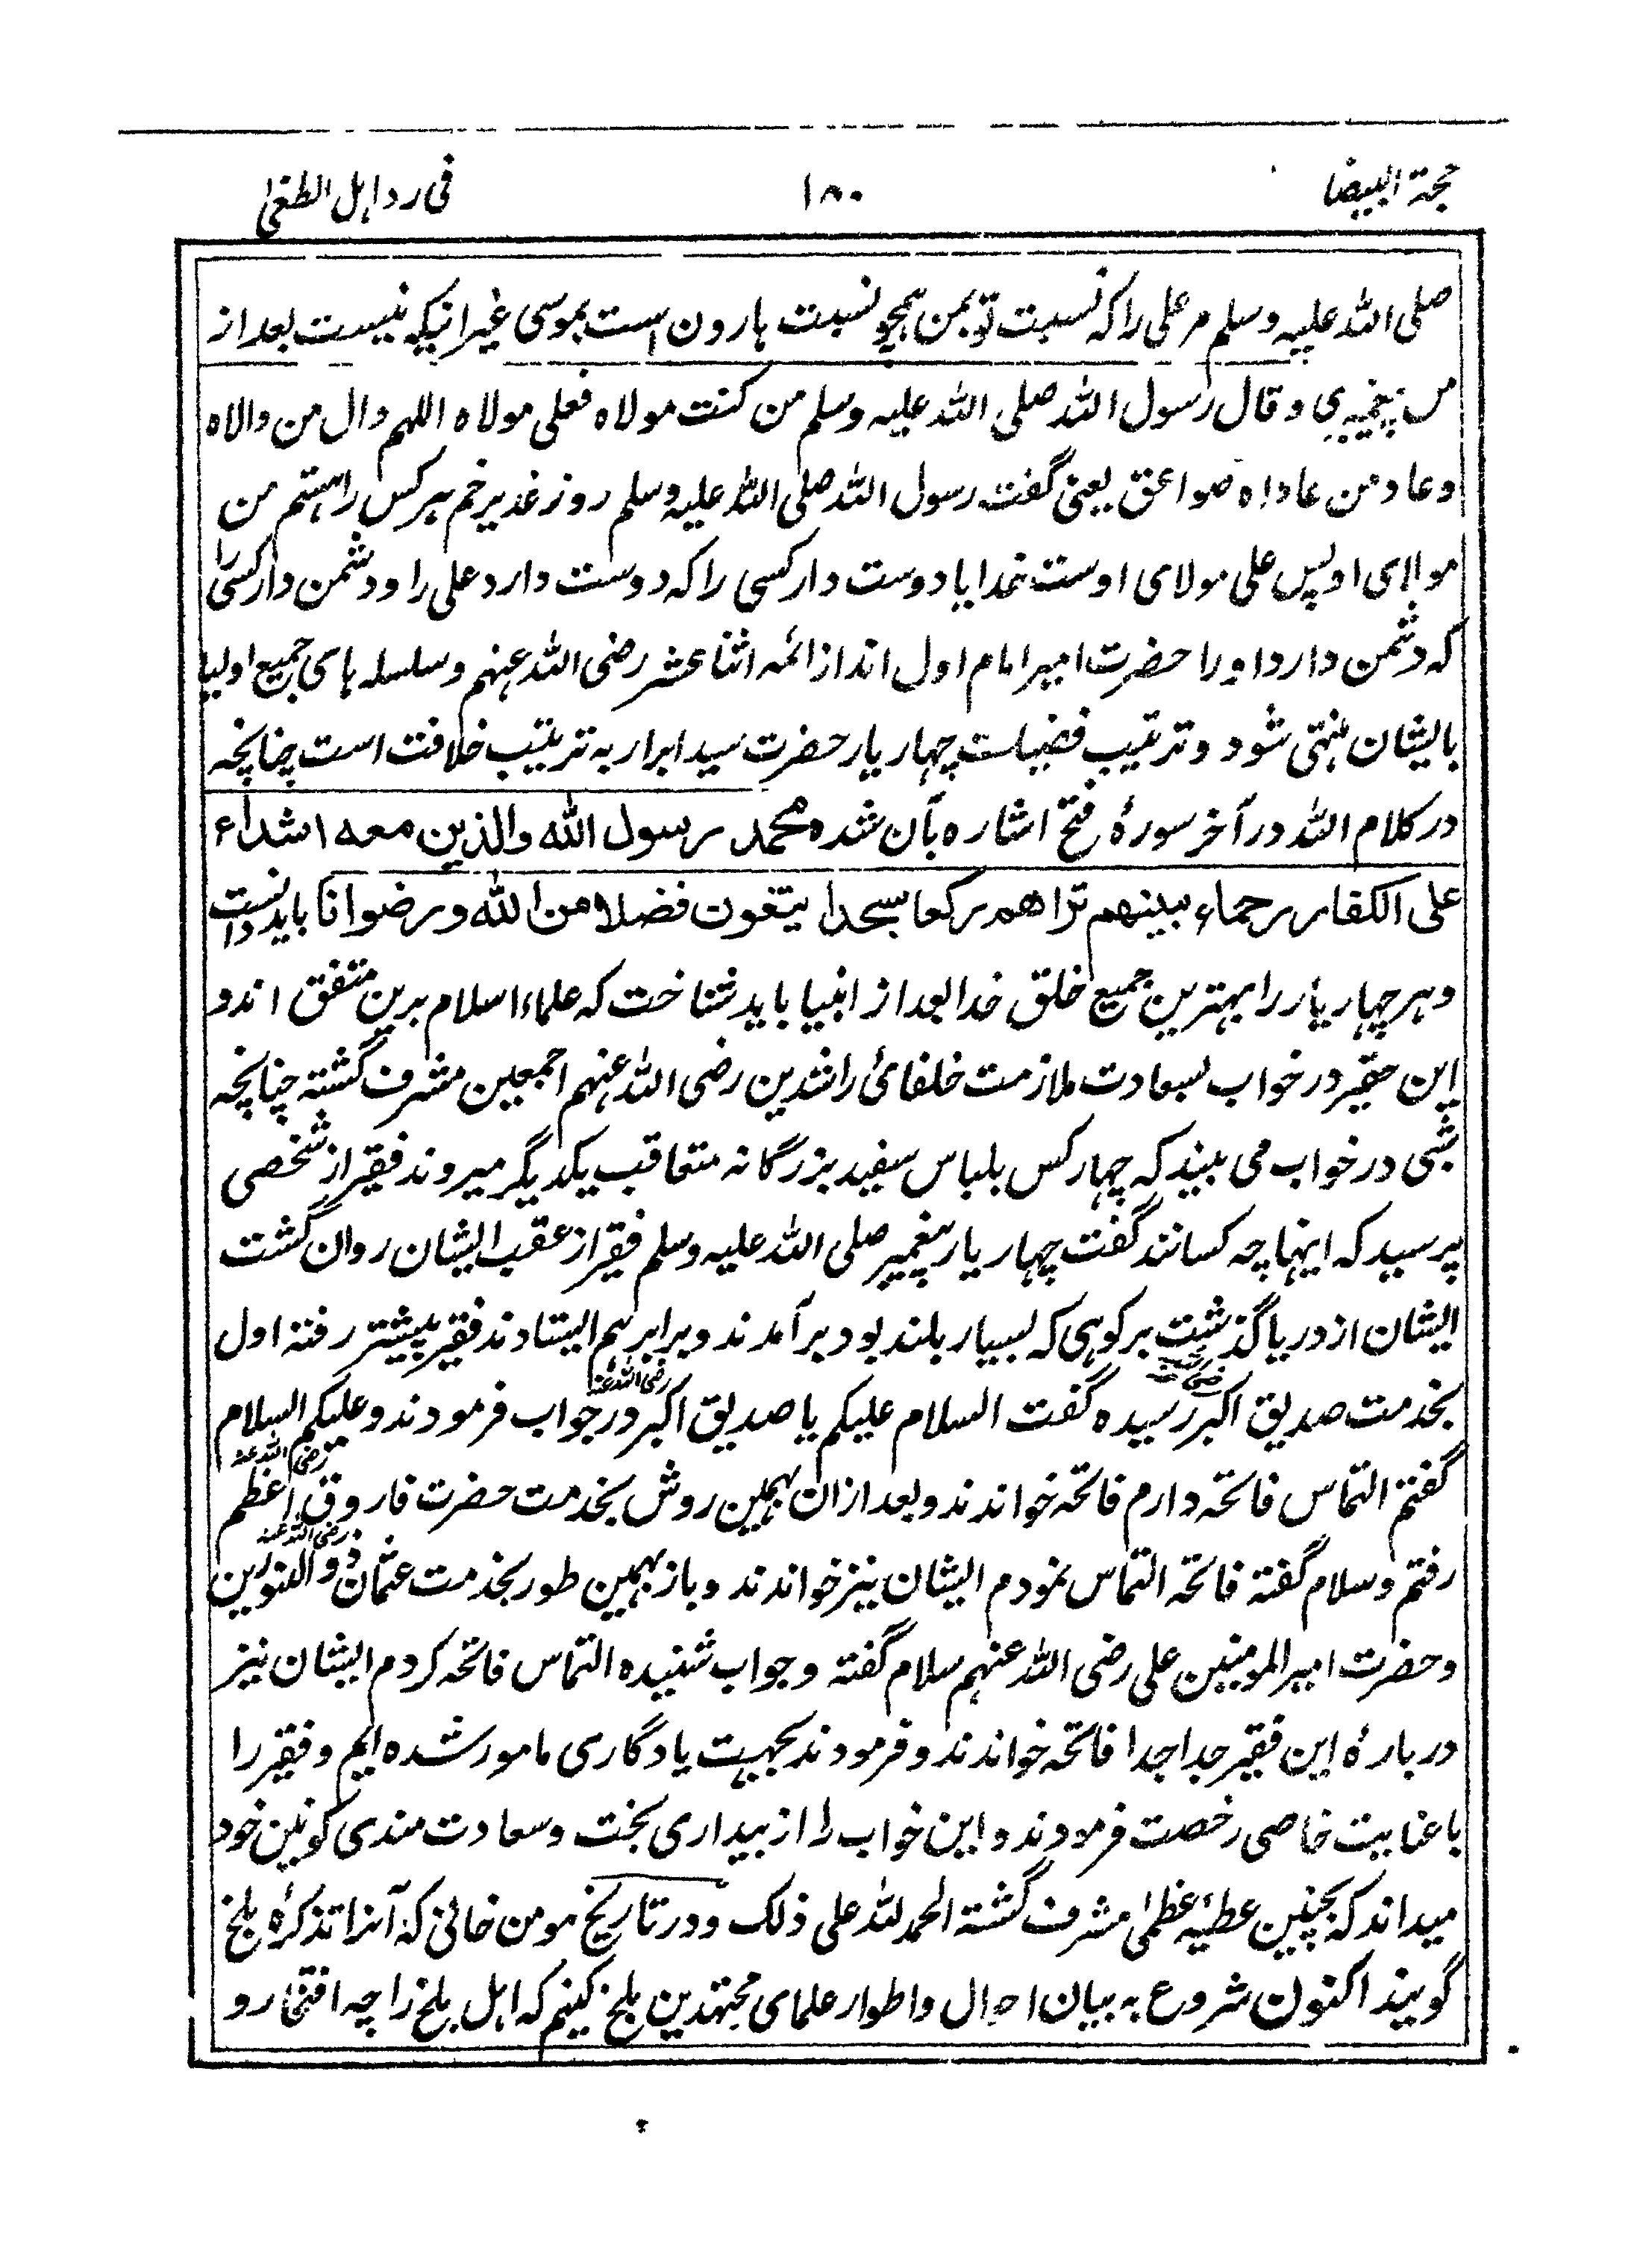 حجة البیضا
۱۸۰
فی رد اہل الطغی
صلی اللہ علیہ وسلم مر علی را کہ نسبت تو بمن ہمچو نسبت ہارون است بموسی غیر اینکہ نیست بعد از
من پیغمبری و قال رسول اللہ صلی اللہ علیہ وسلم من کنت مولاہ فعلی مولاہ اللہم وال من والاہ
وعاد من عاداہ صواعق یعنی گفت رسول اللہ صلی اللہ علیہ وسلم روز غدیر خم ہر کس را ہستم من
مولای او پس علی مولای اوست خدایا دوست دار کسی را کہ دوست دارد علی را و دشمن دار کسی را
کہ دشمن دارد او را حضرت امیر امام اول اند از ائمہ اثنا عشر رضی اللہ عنہم و سلسلہ ہای جمیع اولیا
بایشان منتہی شود و ترتیب فضیلت چہار یار حضرت سید ابرار بہ ترتیب خلافت است چنانچہ
در کلام اللہ در آخر سورۂ فتح اشارہ بآن شدہ محمد رسول اللہ والذین معہ اشداء
علی الکفار رحماء بینھم تراھم رکعا سجدا یبتغون فضلا من اللہ ورضوانا باید دانست
و ہر چہار یار را بہترین جمیع خلق خدا بعد از انبیا باید شناخت کہ علماء اسلام برین متفق اند و
این حقیر در خواب بسعادت ملازمت خلفائ راشدین رضی اللہ عنہم اجمعین مشرف گشتہ چنانچہ
شبی در خواب می بیند کہ چہار کس بلباس سفید بزرگانہ متعاقب یکدیگر میروند فقیر از شخصی
پرسید کہ اینہا چہ کسانند گفت چہار یار پیغمبر صلی اللہ علیہ وسلم فقیر از عقب ایشان روان گشت
ایشان از دریا گذشت بر کوہی کہ بسیار بلند بود برآمدند و برابر ہم ایستادند فقیر پیشتر رفتہ اول
بخدمت صدیق اکبر رضی اللہ عنہ رسیدہ گفت السلام علیکم یا صدیق اکبر رضی اللہ عنہ در جواب فرمودند وعلیکم السلام
گفتم التماس فاتحہ دارم فاتحہ خواندند و بعد ازان بہمین روش بخدمت حضرت فاروق اعظم رضی اللہ عنہ
رفتم و سلام گفتہ فاتحہ التماس نمودم ایشان نیز خواندند و باز بہمین طور بخدمت عثمان ذو النورین رضی اللہ عنہ
و حضرت امیر المومنین علی رضی اللہ عنہم سلام گفتہ و جواب شنیدہ التماس فاتحہ کردم ایشان نیز
در بارۂ این فقیر جدا جدا فاتحہ خواندند و فرمودند بجہت یادگاری مامور شدہ ایم و فقیر را
با عنایت خاصی رخصت فرمودند و این خواب را از بیداری بخت و سعادت مندی کونین خود
میداند کہ بچنین عطیۂ عظمٰی مشرف گشتہ الحمد للہ علی ذلک و در تاریخ مومن خانی کہ آنرا تذکرۂ بلخ
گویند اکنون شروع بہ بیان احوال و اطوار علمای مجتہدین بلخ کنیم کہ اہل بلخ را چہ افتخار و